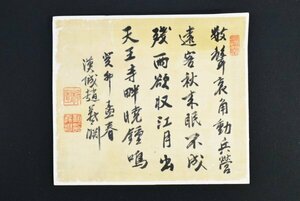 數聲哀角動兵營
遠客秋來眠不成
殘雨欲収江月出
天王寺畔曉鐘鳴
癸卯孟春
漢城趙羲淵